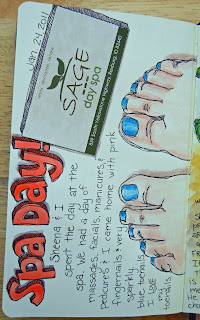 JAN. 24 2011
SAGE
day spa
Spa Day!
Sheena & I
spent the day at the
spa. We had a day of
massages, facials, manicures, &
pedicures! I came home with pink
fingernails & very
sparkly
blue toenails.
I LOVE
my
toenails.